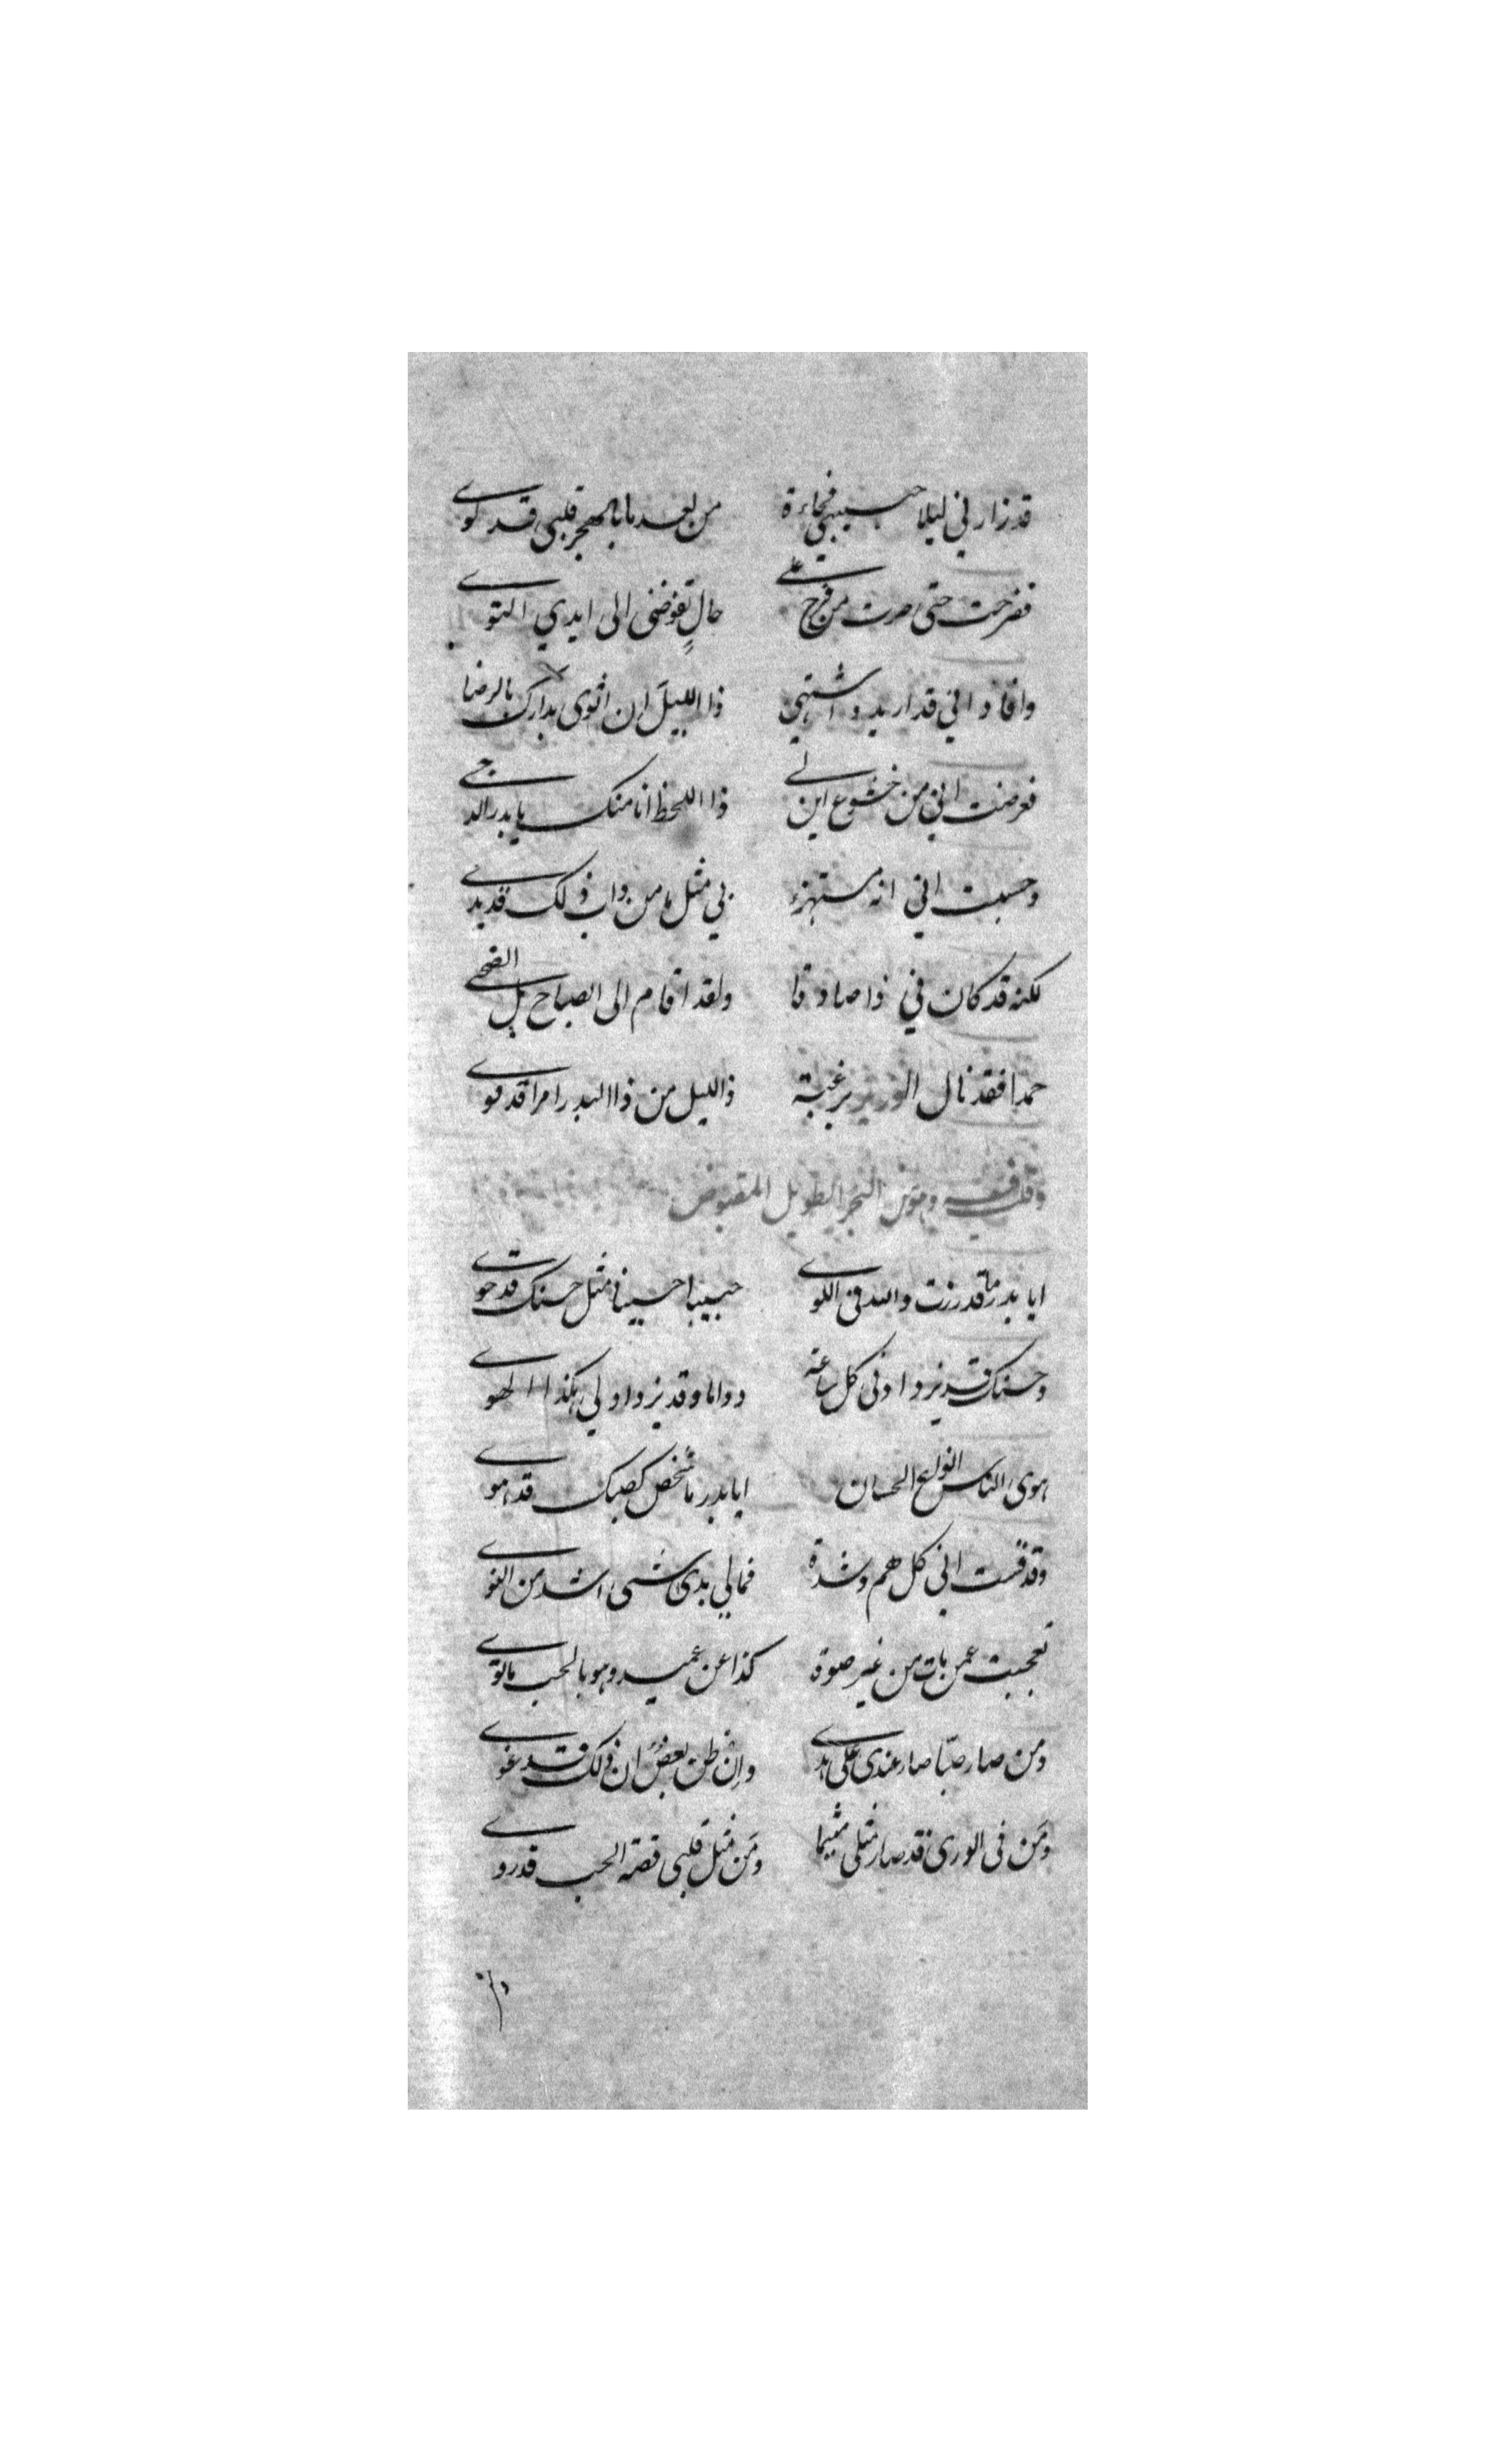 قد زارني ليلا حبيبي فجاءة من بعد ما بالهجر قلبي قد كوى
ففرحت حتى صرت من فرح على حال تفوضني الى ايدي التوى
وافاد اني قد اريد واشتهي ذا الليل ان اثوى بدارك بالرضا
فعرضت اني من خشوع اين لي ذا اللحظ انا منك يا بدر الدجى
وحسبت اني انه مستهزء بي مثل ما من داب ذلك قد بدى
لكنه قد كان في ذا صادقا ولقد اقام الى الصباح بل الضحى
حمدا فقد نال الوزير برغبة ذا الليل من ذا البدر امرا قد نوى
وقلت فيه وهو من البحر الطويل المقبوض
ايا بدر ما قد رزت والله في اللوى حبيبا حسينا مثل حسنك قد حوى
وحسنك قد يزداد في كل ساعة دواما وقد يزداد لي هكذا الهوى
هوى الناس الحسان ايا بدر ما شخص كصبك قد هوى
وقد قست اني كل هم وشدة فما لي بدى شئ اشد من النوى
تعجبت عمن بات من غير صبوة كذا عن عميد وهو بالحب ما توى
ومن صار صبّا صار عندي على هدى وان ظن بعضٌ ان ذلك قد غوى
ومَن في الورى قد صار مثلي متيما ومَن مثل قلبي قصة الحب قد روى